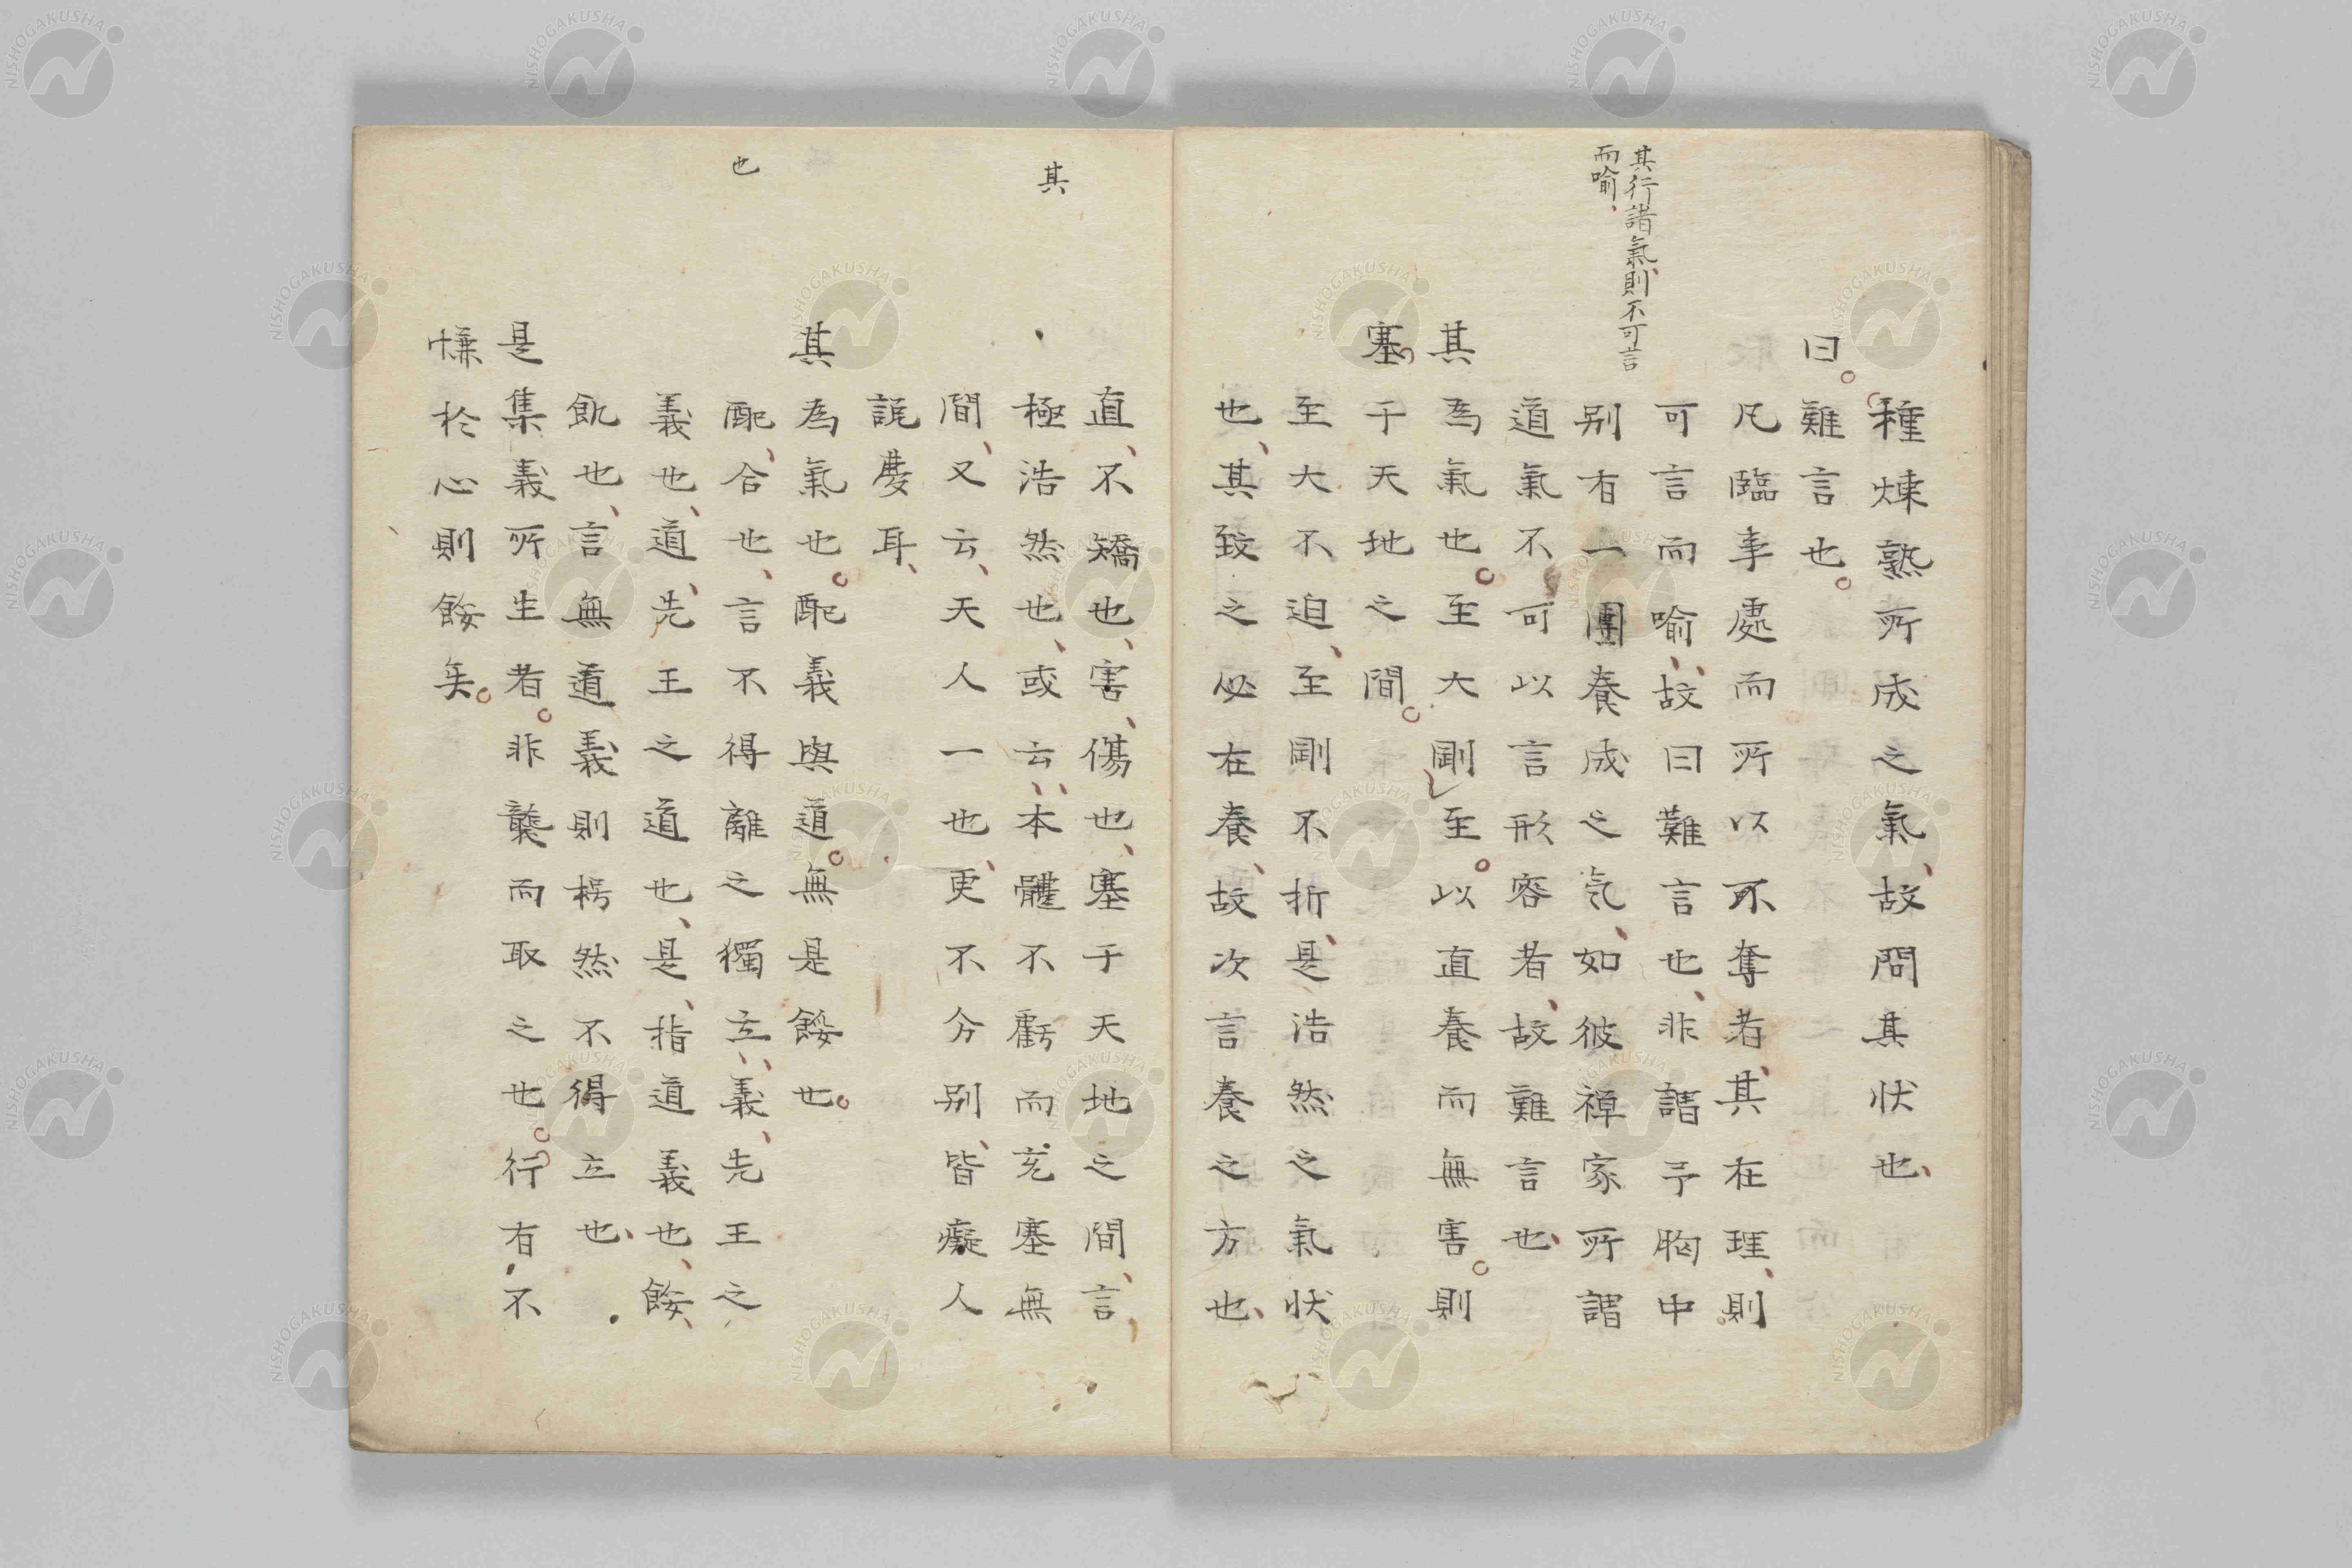 其行諸氣則不可言
而喻、
種煉熟所成之氣、故問其狀也、
曰。難言也。
凡臨事處而所以不奪者、其在理、則
可言而喻、故曰難言也、非謂予胸中
別有一團養成之気、如彼禅家所謂
道氣不可以言形容者、故難言也、
其為氣也。至大剛至。以直養而無害。則
塞于天地之間。
至大不迫、至剛不折、是浩然之氣狀
也、其致之必在養、故次言養之方也、
其
也
直、不矯也、害、傷也、塞于天地之間、言、
極浩然也、或云、本體不虧而充塞無
間、又云、天人一也、更不分別、皆癡人
說慶耳、
其為氣也。配義與道。無是餒也。
配、合也、言不得離之獨立、義、先王之
義也、道、先王之道也、是、指道義也、餒、
飢也、言無道義則枵然不得立也、
是集義所生者。非襲而取之也。行有不
慊於心則餒矣。
NISHOGAKUSHA